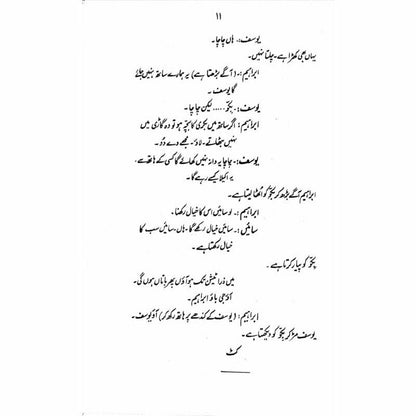 ۱۱
یوسف:۔ ہاں چاچا۔
یہاں بھی کھڑا ہے۔ چلتا نہیں۔
ابراہیم:۔ (آگے بڑھتا ہے) یہ ہمارے ساتھ نہیں جائے
گا یوسف۔
یوسف:۔ بگو..... لیکن چاچا۔
ابراہیم:۔ اگر ساتھ میں بکری کا بچہ ہو تو وہ گاڑی میں
نہیں بٹھاتے۔ لاؤ۔ مجھے دے دو۔
یوسف:۔ چاچا یہ دانہ نہیں کھائے گا کسی کے ہاتھ سے۔
یہ اکیلا کیسے رہے گا۔
ابراہیم آگے بڑھ کر بگو کو اُٹھا لیتا ہے۔
ابراہیم:۔ لو سائیں اس کا خیال رکھنا۔
سائیں:۔ سائیں خیال رکھے گا۔ ہاں، سائیں سب کا
خیال رکھتا ہے۔
بگو کو پیار کرتا ہے۔
میں ذرا تک ہو آؤں پھر باتاں ہوں گی۔
آؤ جی باؤ ابراہیم۔
ابراہیم:۔ (یوسف کے کندھے پر ہاتھ رکھ کر) آؤ یوسف۔
یوسف مڑ کر بگو کو دیکھتا ہے۔
کٹ